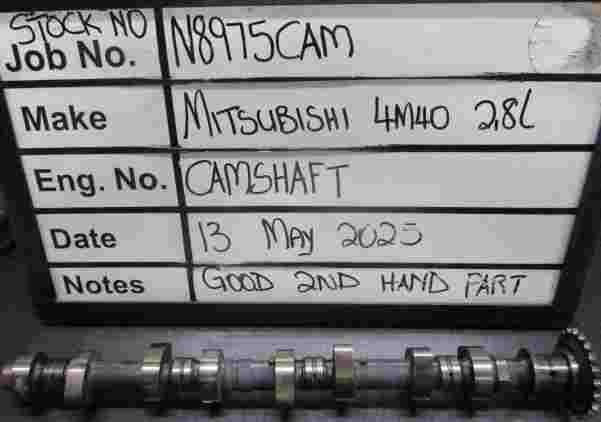 STOCK NO
Job No. N8975CAM
Make MITSUBISHI 4M40 2.8L
Eng. No. CAMSHAFT
Date 13 MAY 2025
Notes GOOD 2ND HAND PART